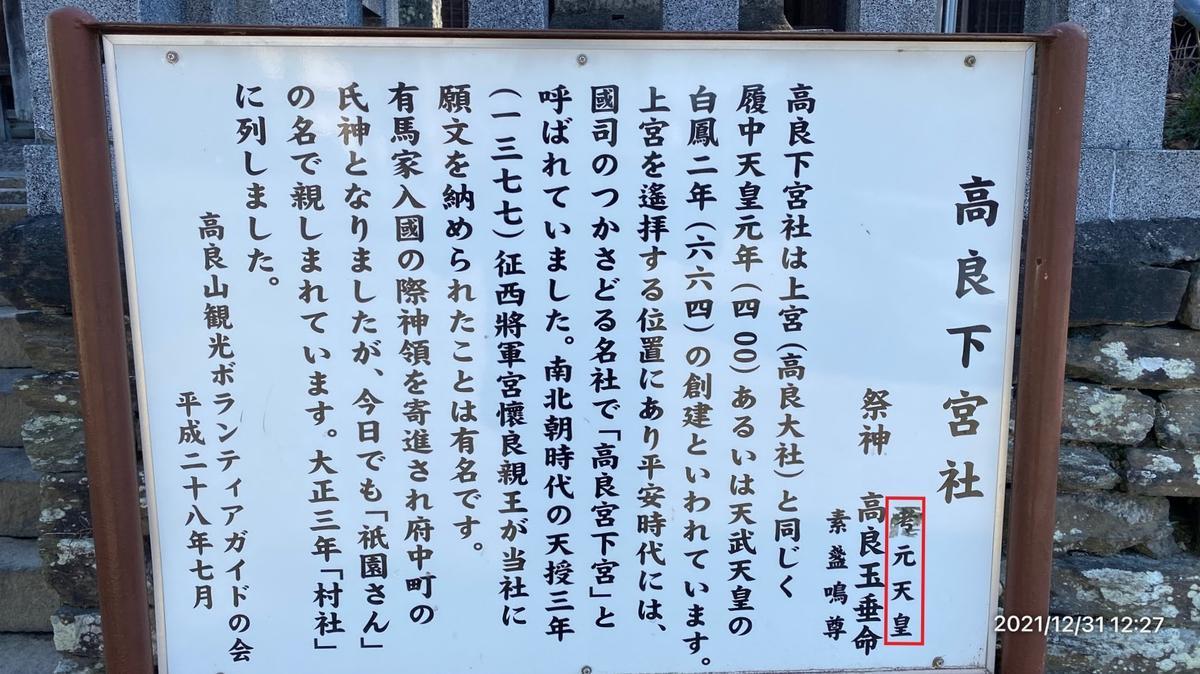 高良下宮社
元天皇
祭神　高良玉垂命
素盞鳴尊
高良下宮社は上宮（高良大社）と同じく
履中天皇元年（四〇〇）あるいは天武天皇の
白鳳二年（六六四）の創建といわれています。
上宮を遙拝する位置にあり平安時代には、
國司のつかさどる名社で「高良宮下宮」と
呼ばれていました。南北朝時代の天授三年
（一三七七）征西將軍宮懷良親王が当社に
願文を納められたことは有名です。
有馬家入國の際神領を寄進され府中町の
氏神となりましたが、今日でも「祇園さん」
の名で親しまれています。大正三年「村社」
に列しました。
高良山観光ボランティアガイドの会
平成二十八年七月
2021/12/31 12:27